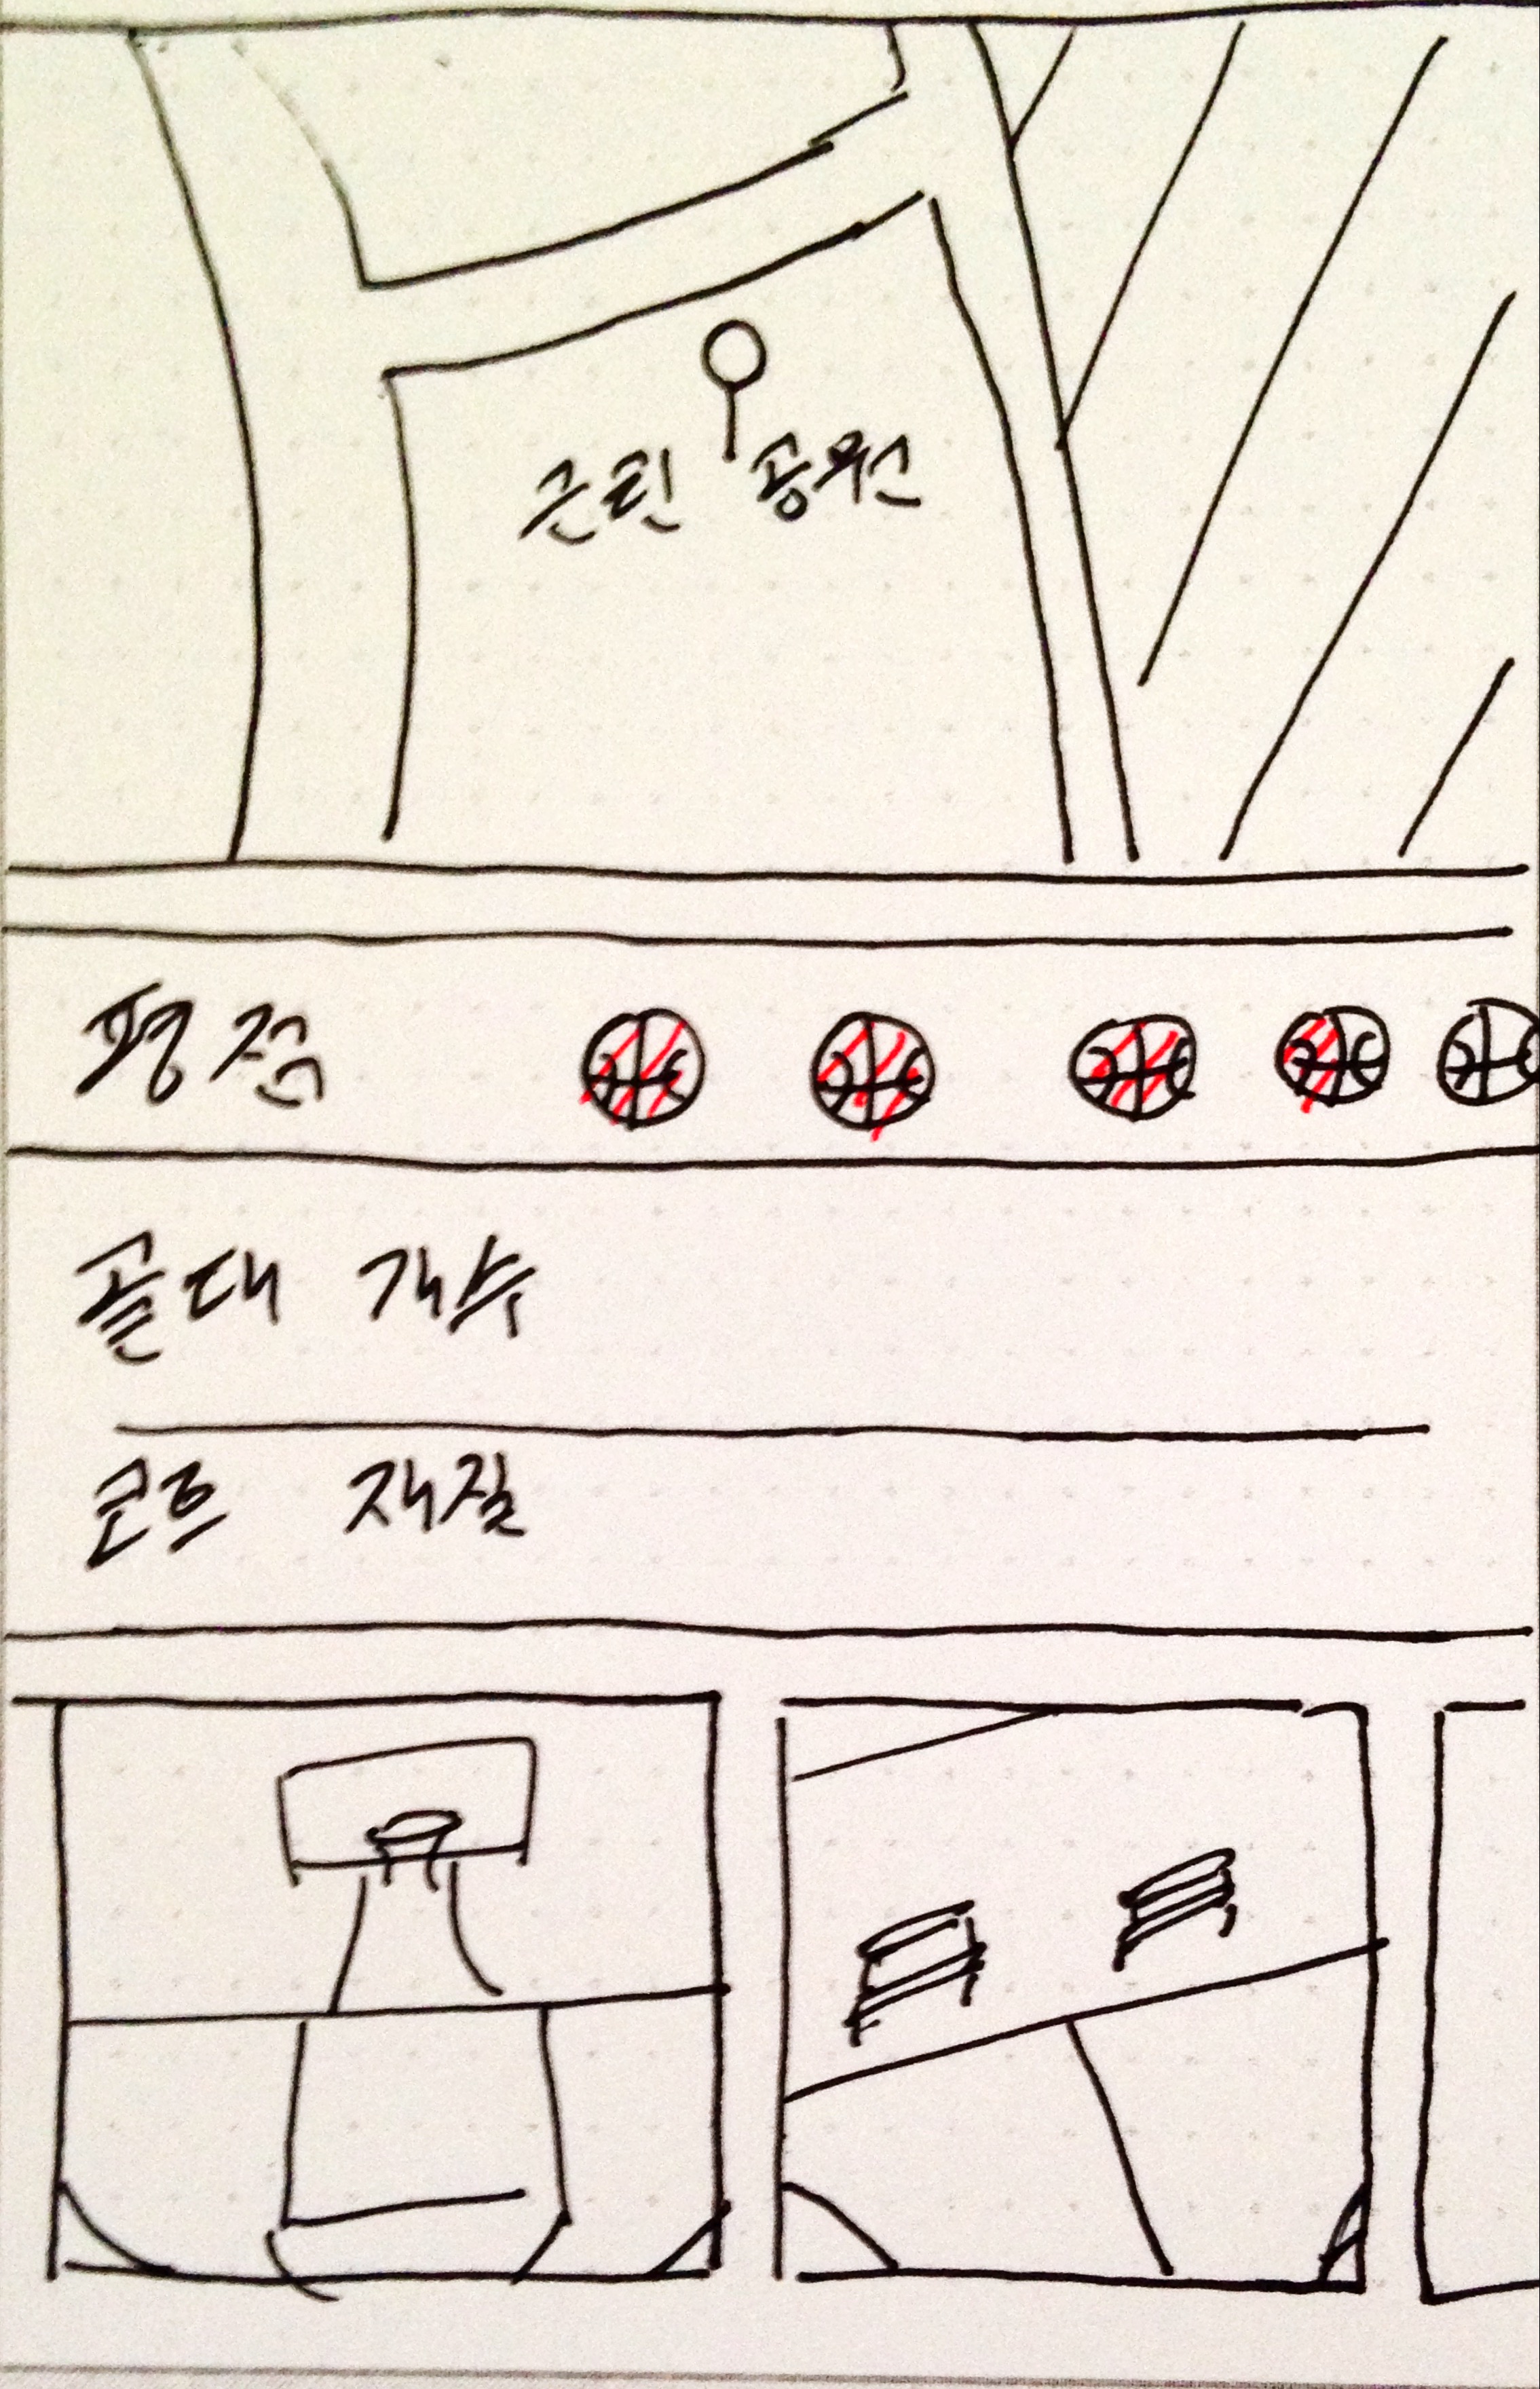 근린 공원
평점
골대 개수
코트 재질